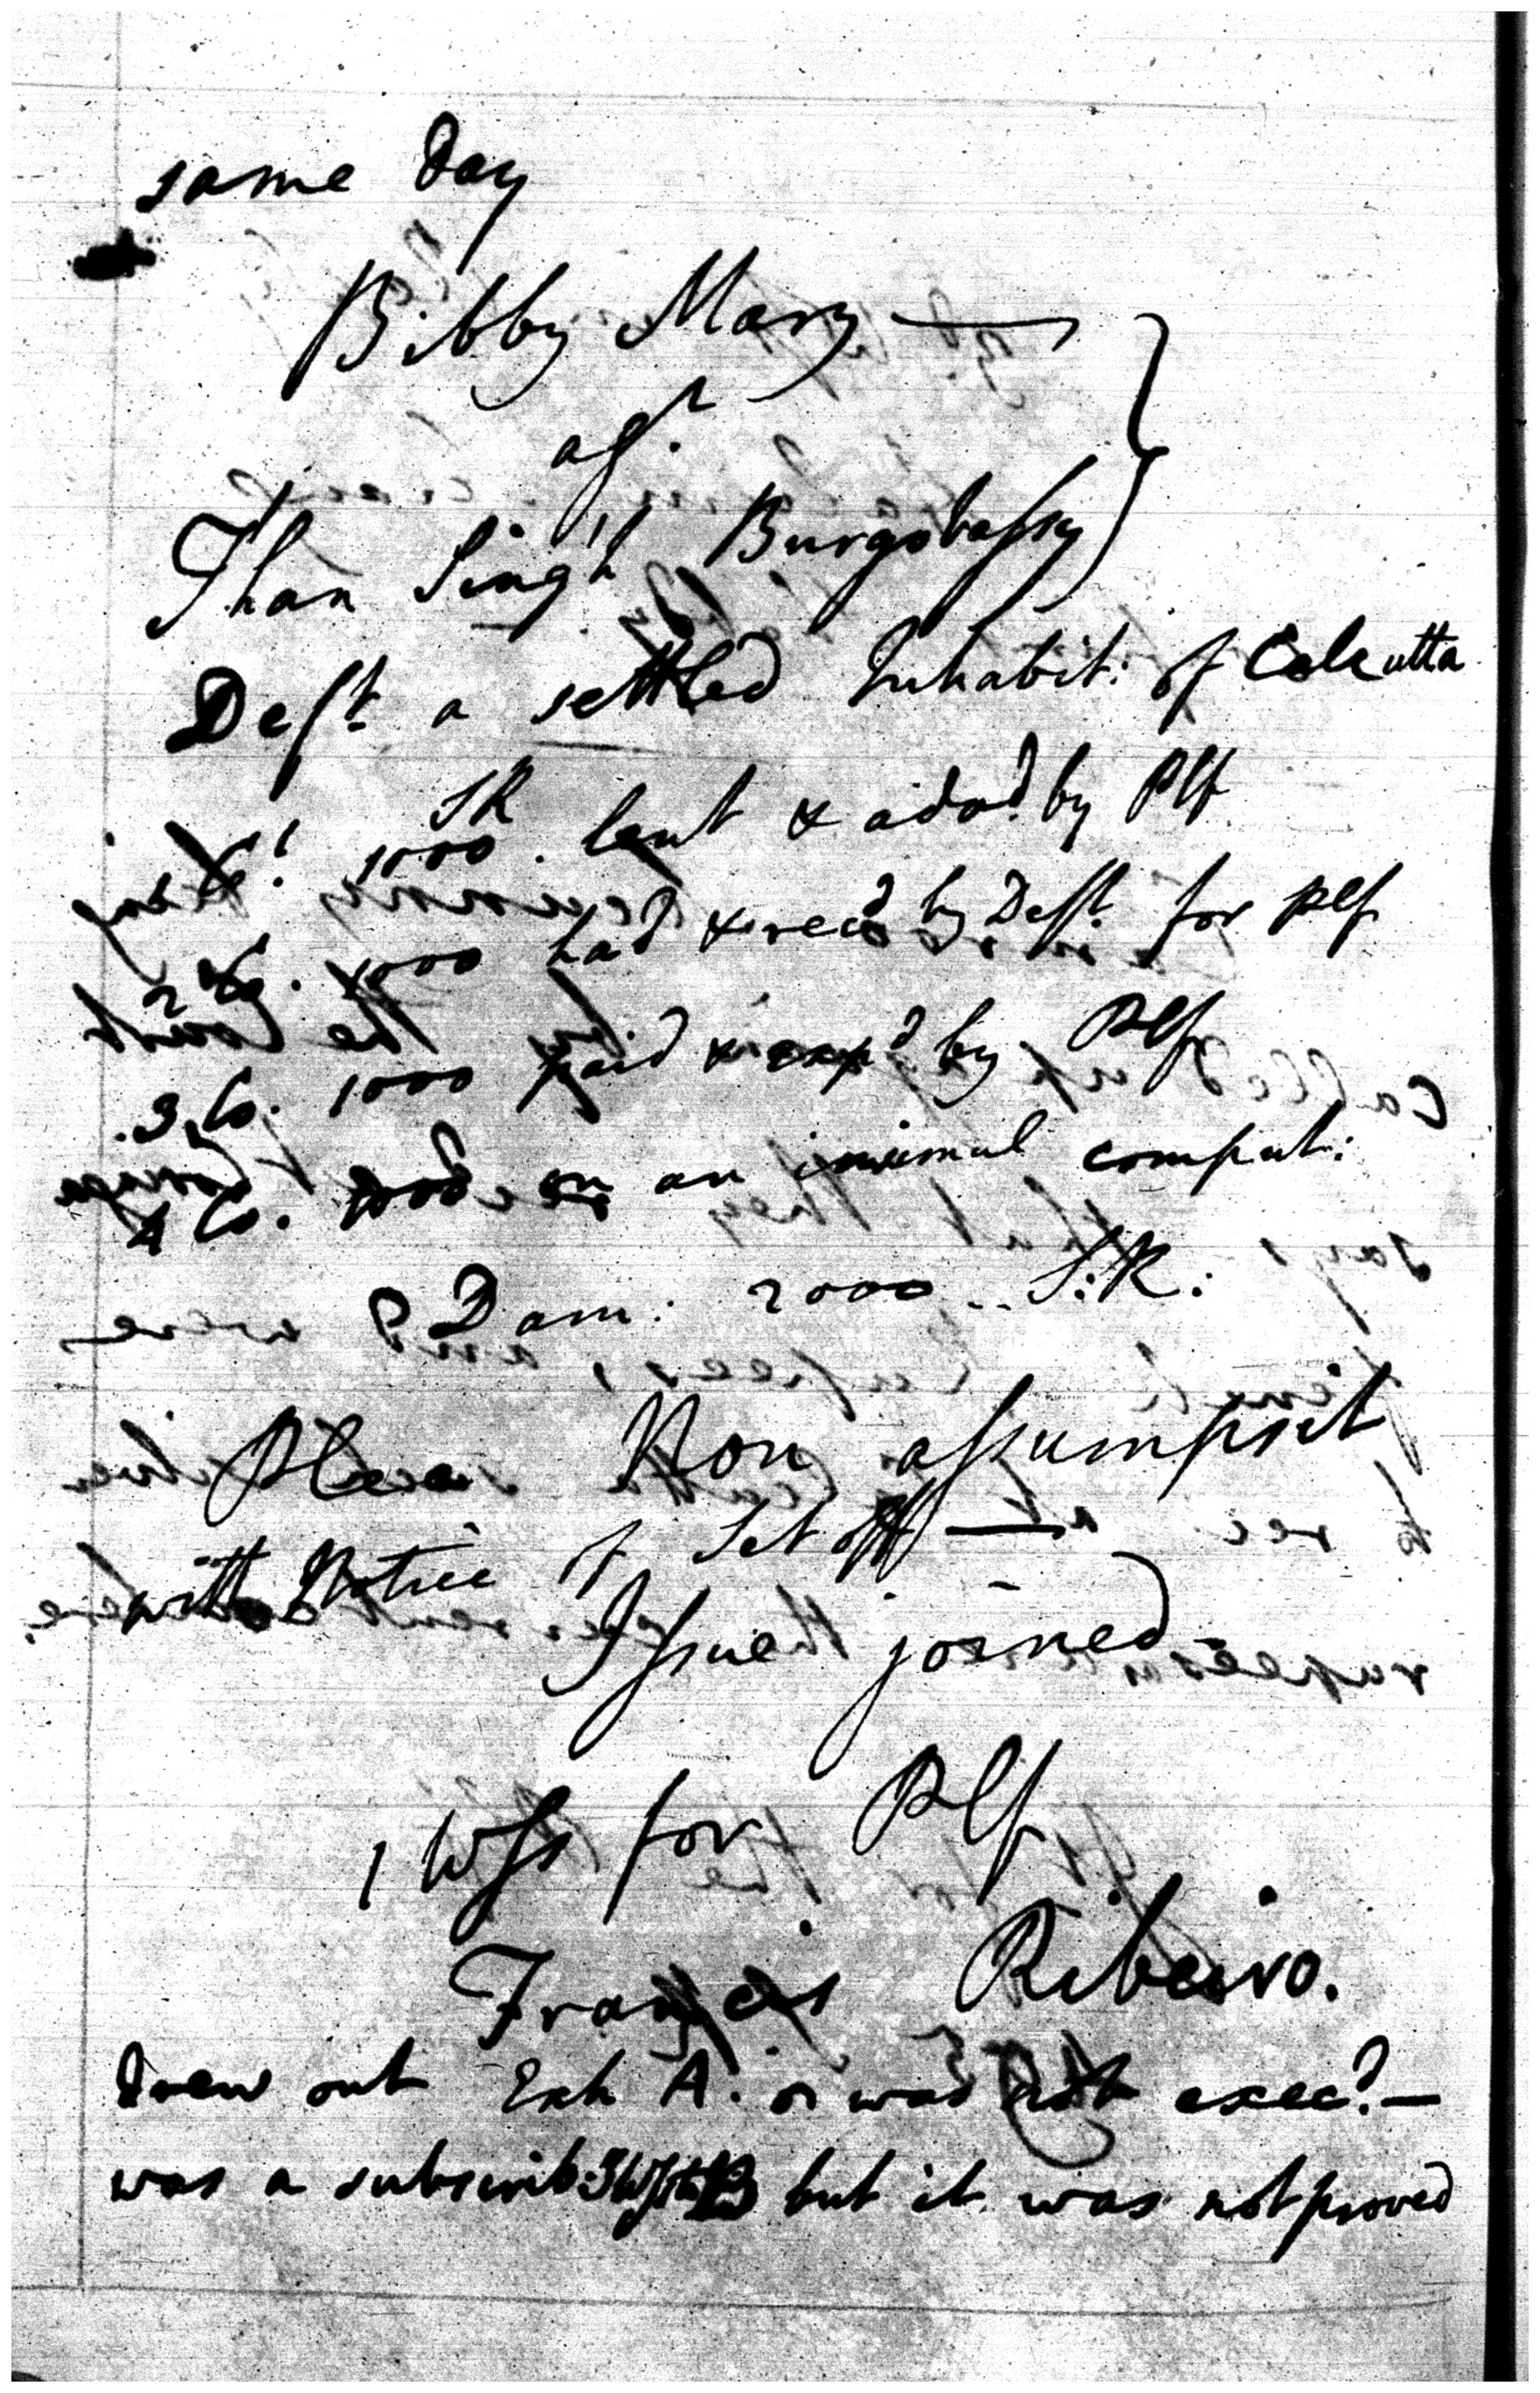 same Day
Bibby Mary —
agt.
Than Singh Burgobassy
Deft. a settled Inhabit: of Calcutta
SR
1 Ct. 1000. lent & advd. by Plf
2 Co. 1000 had & recd by Deft. for Plf
3 Co. 1000 paid & expd by Plf
4 Co. 1000 on an insimul comput:
Dam: 2000 .. S.R:
Plea Non assumpsit
with Notice of Set off —
Issue joined
1 Wss for Plf
Francis Ribeiro.
Drew out Exh A. was not execd. —
was a subscrib: but it was not proved